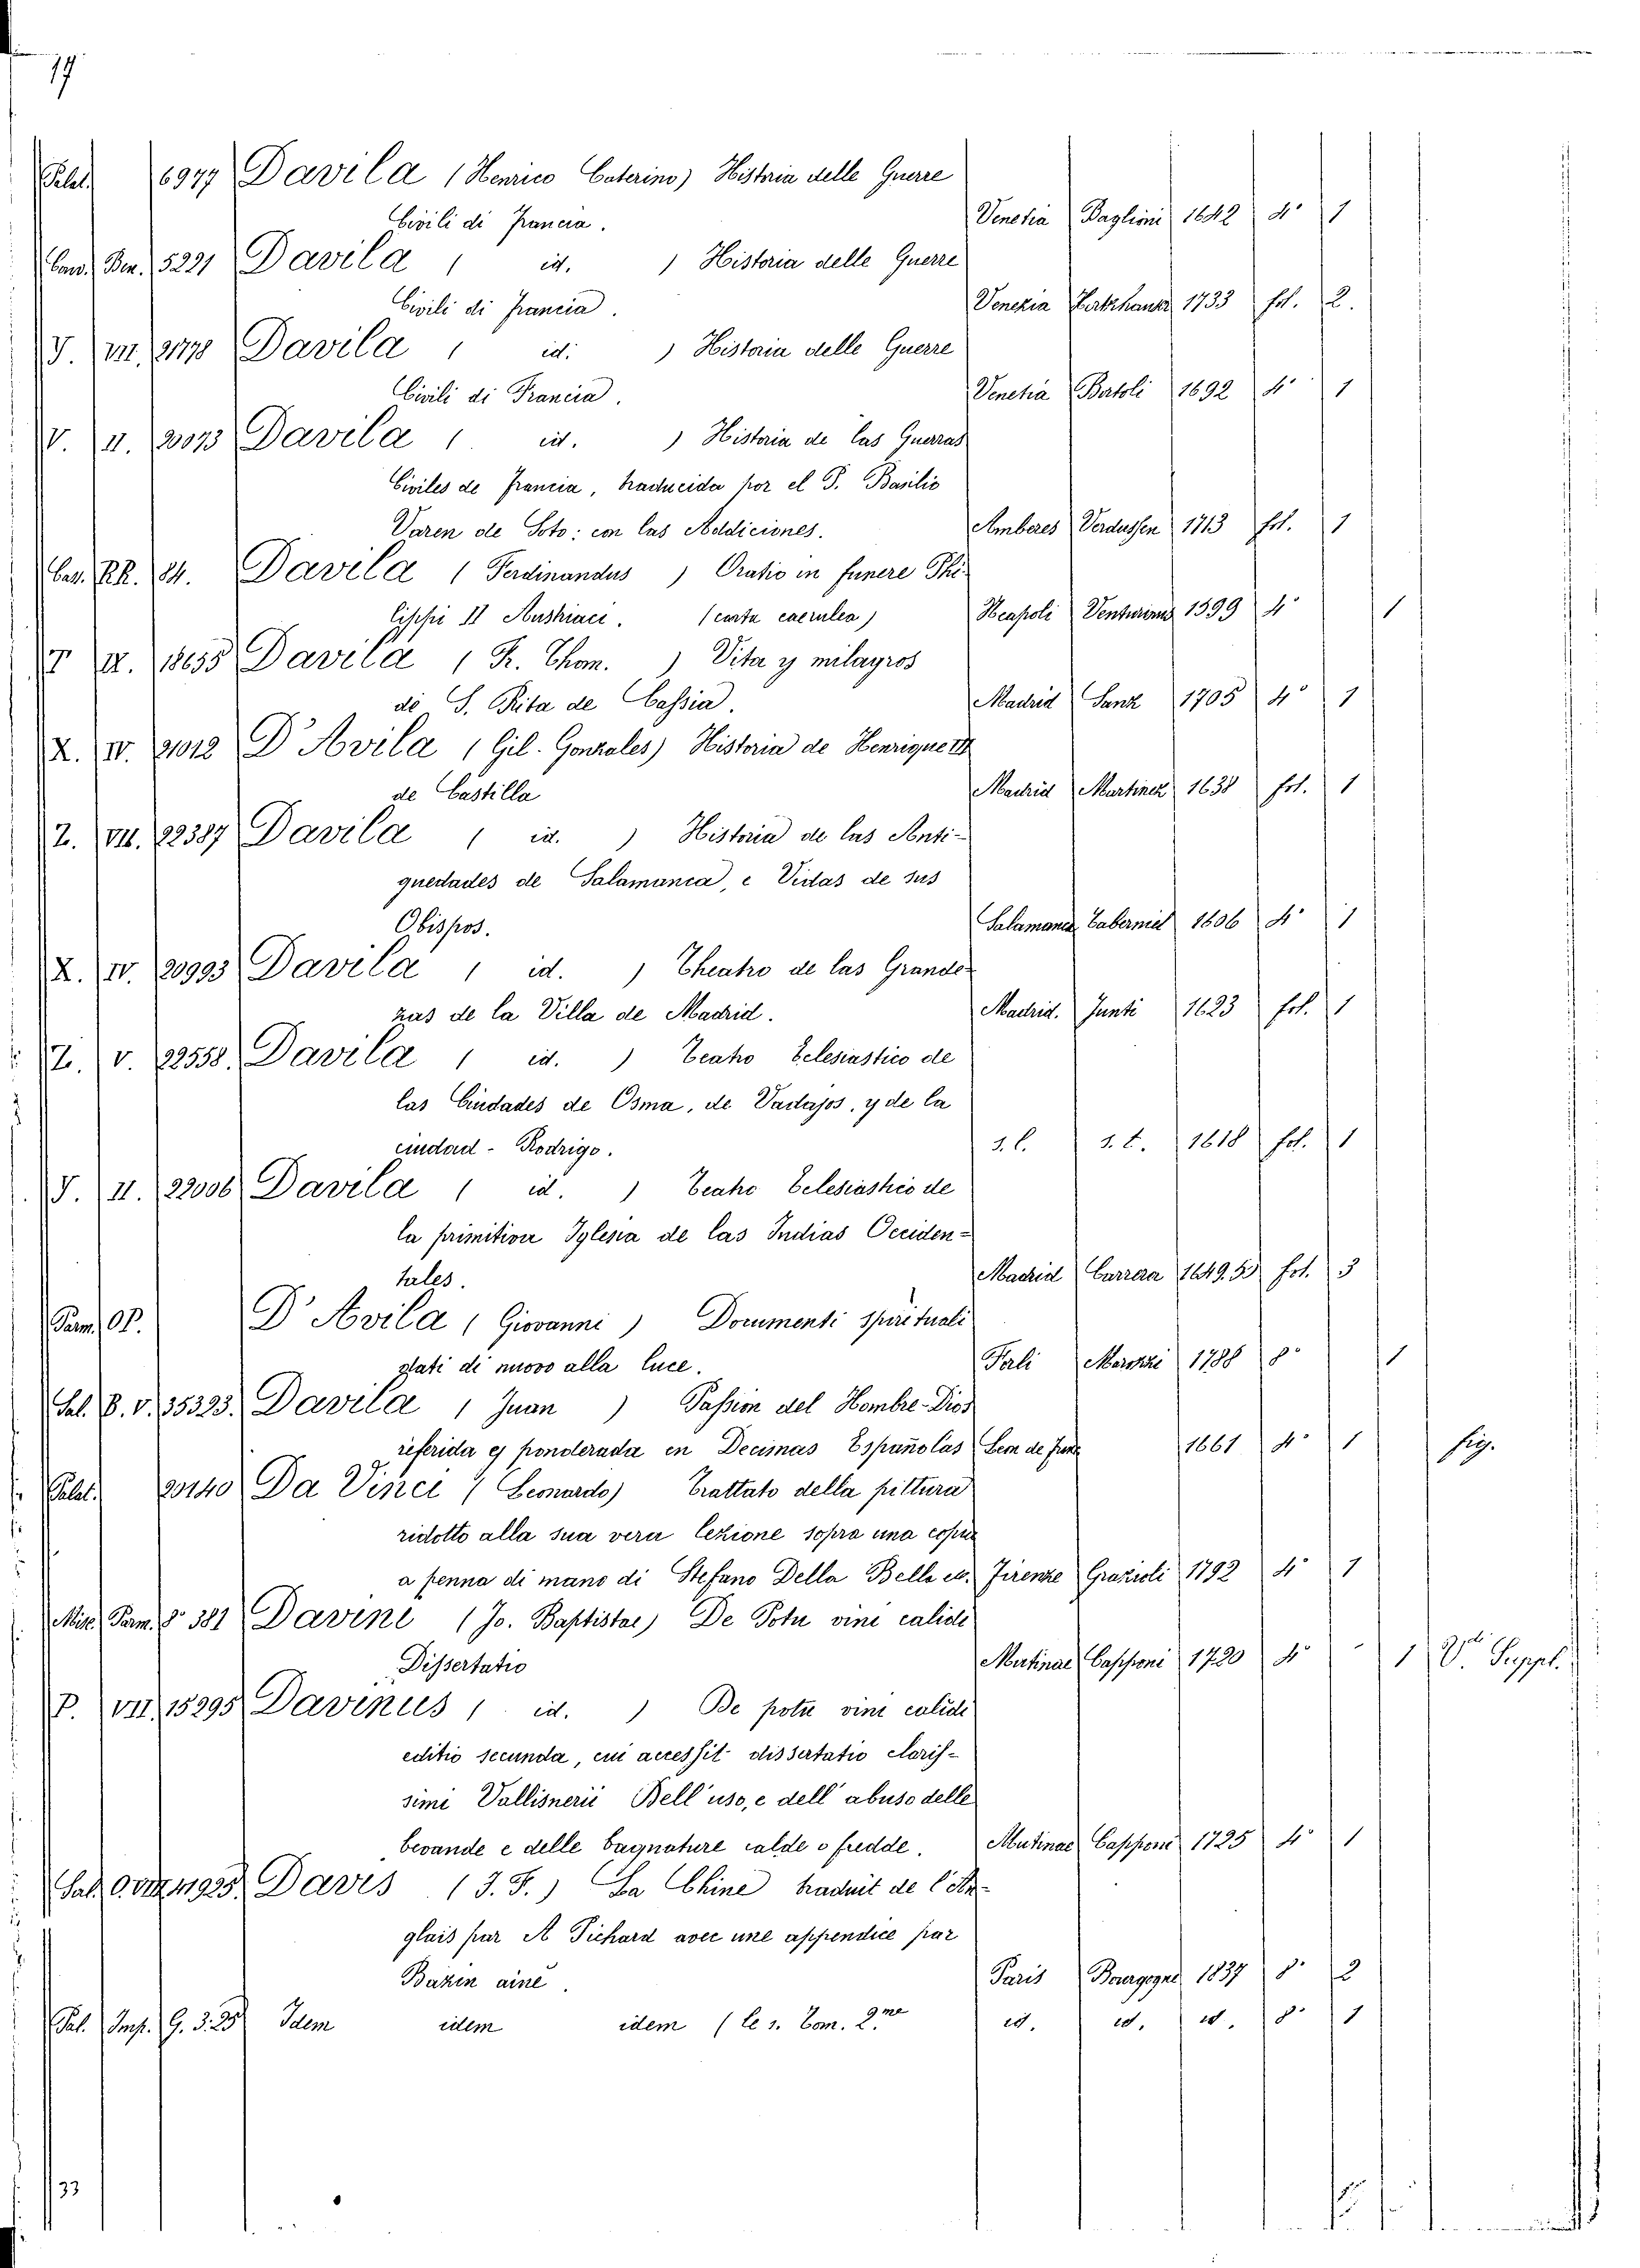 19
Palat. 6977 Davila (Henrico Caterino) Historia delle Guerre
Civili di Francia. Venetia Baglioni 1642 4° 1
Cand. Ben. 5221 Davila ( id. ) Historia delle Guerre
Civili di Francia. Venezia Hertzhauser 1733 fol. 2.
V. VII. 21778 Davila ( id. ) Historia delle Guerre
Civili di Francia. Venetia Bertoli 1692 4° 1
V. II. 20073 Davila ( id. ) Historia de las Guerras
Civiles de Francia, traducida por el P. Basilio
Varen de Soto: con las Addiciones. Amberes Verdussen 1713 fol. 1
Cas. RR. 84. Davila (Ferdinandus) Oratio in funere Phi-
lippi II Austriaci. (carta caerulea) Neapoli Venturinus 1599 4° 1
T IX. 18655 Davila (Fr. Thom.) Vita y milagros
de S. Rita de Cassia. Madrid Sanz 1705 4° 1
X. IV. 21012 D'Avila (Gil-Gonzales) Historia de Henrique III
de Castilla Madrid Martinez 1638 fol. 1
Z. VII. 22387 Davila ( id. ) Historia de las Anti-
quedades de Salamanca, e Vidas de sus
Obispos. Salamanca Taberniel 1606 4° 1
X. IV. 20993 Davila ( id. ) Theatro de las Grande-
zas de la Villa de Madrid. Madrid. Junti 1623 fol. 1
Z. V. 22558. Davila ( id. ) Teatro Eclesiastico de
las Ciudades de Osma, de Vadajos, y de la
ciudad-Rodrigo. s. l. s. t. 1618 fol. 1
V. II. 22006 Davila ( id. ) Teatro Eclesiastico de
la primitiva Iglesia de las Indias Occiden-
tales. Madrid Carrera 1649.55 fol. 3
Parm. OP. D'Avila (Giovanni) Documenti spirituali
dati di nuovo alla luce. Forlì Marozzi 1788 8° 1
Sal. B. V. 35323. Davila (Juan) Passion del Hombre-Dios
referida y ponderada en Decimas Españolas Leon de 1661 4° 1 fig.
Palat. 20140 Da Vinci (Leonardo) Trattato della pittura
ridotto alla sua vera lezione sopra una copia
a penna di mano di Stefano Della Bella ec. Firenze Grazioli 1792 4° 1
Misc. Parm. 8° 381 Davini (Jo. Baptistae) De Potu vini calidi
Dissertatio Mutinae Capponi 1720 4° 1 Vdi Suppl.
P. VII. 15295 Davinus ( id. ) De potu vini calidi
editio secunda, cui accessit dissertatio claris-
simi Vallisnerii Dell'uso, e dell'abuso delle
bevande e delle bagnature calde o fredde. Mutinae Capponi 1725 4° 1
Sal. O. VIII 41925. Davis (J. F.) La Chine traduit de l'An-
glais par A Pichard avec une appendice par
Bazin ainé. Paris Bourgogne 1837 8° 2
Pal. Imp. G. 3. 25 Idem idem idem (le 1. Tom. 2me id. id. id. 8° 1
33